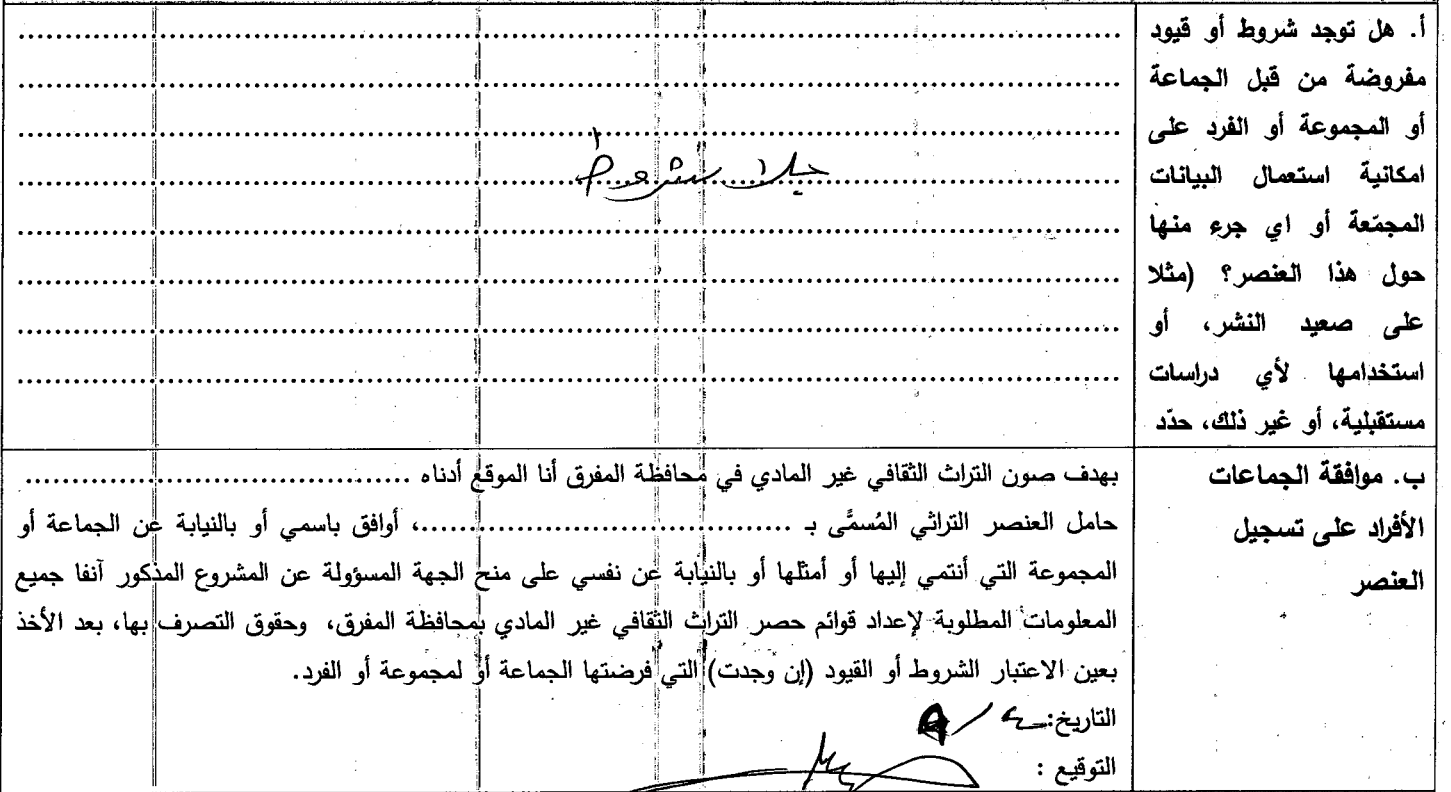 أ. هل توجد شروط أو قيود
مفروضة من قبل الجماعة
أو المجموعة أو الفرد على
امكانية استعمال البيانات
المجمّعة أو اي جرء منها
حول هذا العنصر؟ (مثلا
على صعيد النشر، أو
استخدامها لأي دراسات
مستقبلية، أو غير ذلك، حدّد
بلا شروط
ب. موافقة الجماعات
الأفراد على تسجيل
العنصر
بهدف صون التراث الثقافي غير المادي في محافظة المفرق أنا الموقع أدناه ......................................
حامل العنصر التراثي المُسمَّى بـ ......................................، أوافق باسمي أو بالنيابة عن الجماعة أو
المجموعة التي أنتمي إليها أو أمثلها أو بالنيابة عن نفسي على منح الجهة المسؤولة عن المشروع المذكور آنفا جميع
المعلومات المطلوبة لإعداد قوائم حصر التراث الثقافي غير المادي بمحافظة المفرق، وحقوق التصرف بها، بعد الأخذ
بعين الاعتبار الشروط أو القيود (إن وجدت) التي فرضتها الجماعة أو لمجموعة أو الفرد.
التاريخ:
التوقيع :